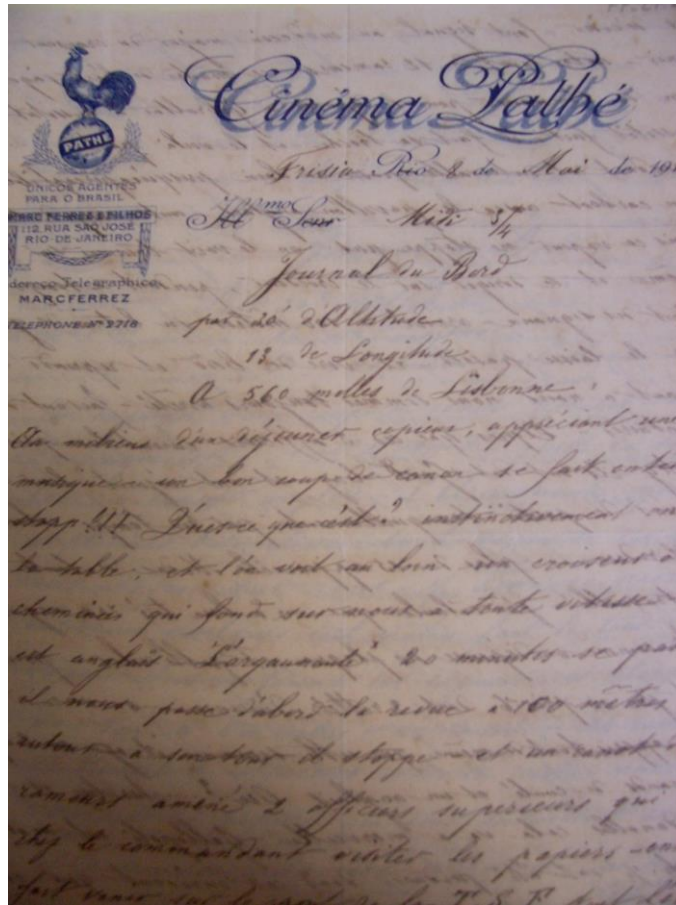 Cinéma Pathé
PATHÉ
UNICOS AGENTES
PARA O BRASIL
MARC FERREZ & FILHOS
112, RUA SÃO JOSÉ
RIO DE JANEIRO
dereço Telegraphico
MARCFERREZ
TELEPHONE Nº 2718
Frisia Rio 8 de Mai de 19
Illmo Snr Midi 3/4
Journal du Bord
par 20 d'Altitude
13 de Longitude
A 560 milles de Lisbonne
Au milieu d'un déjeuner copieux, appréciant une
musique un bon coup de canon se fait enten
stopp !!! Qu'est ce que c'est? instinctivement on
la table, et l'on voit au loin un croiseur à
cheminées qui fond sur nous à toute vitesse
est anglais 20 minutes se pas
il nous passe d'abord à 100 mètres
autour et stoppe et un canot à
rameurs amène 2 officiers superieurs qui
chez le commandant visiter les papiers on
fait venir de la T. S. F.